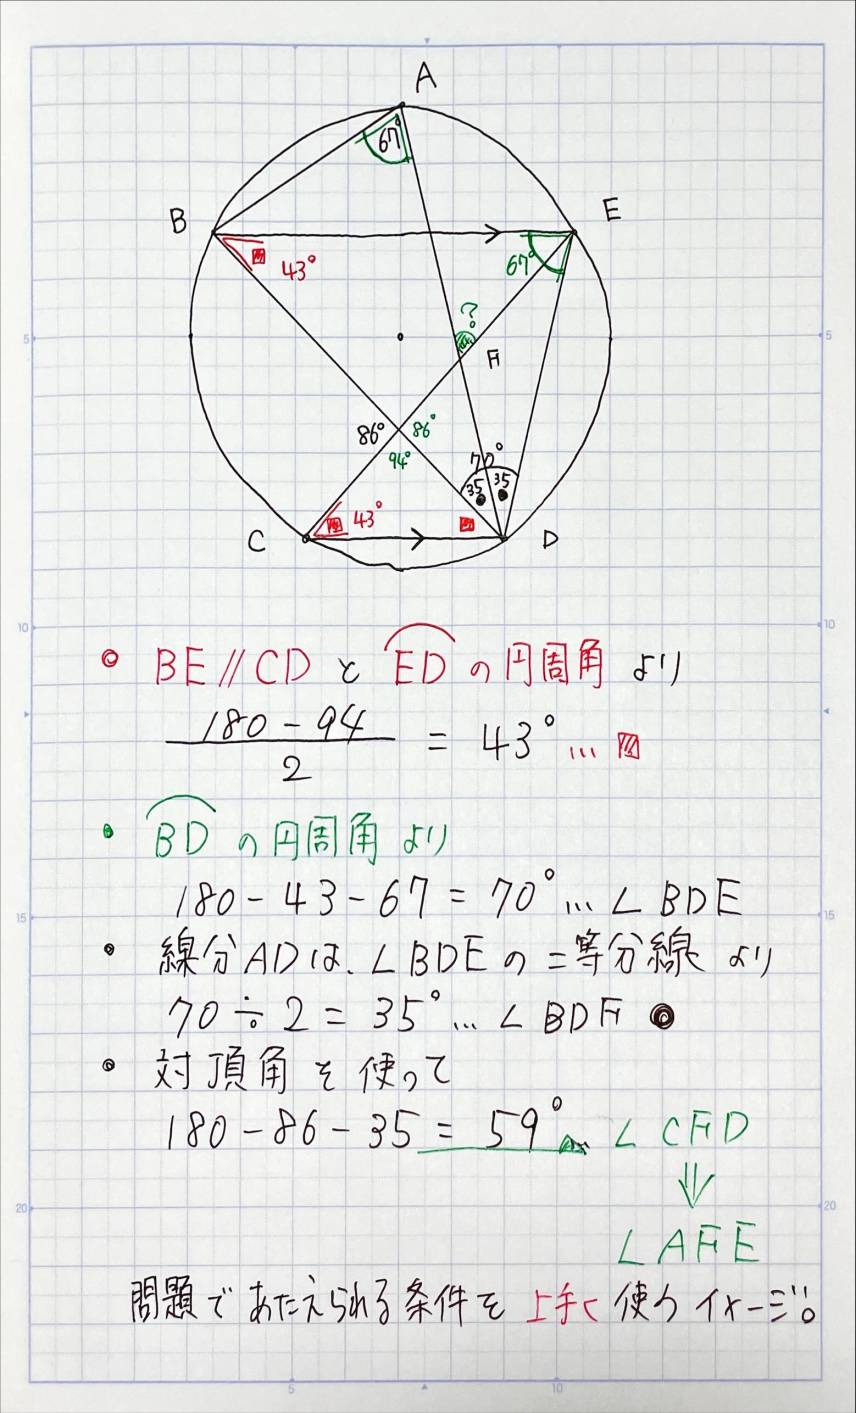 A
67°
B
E
43°
67°
?
F
86°
86°
94°
70°
35
35
43°
C
D
5
5
10
10
BE//CD と EDの円周角 より
180-94
2
= 43°…
BDの円周角より
180-43-67=70°…∠BDE
15
15
線分ADは、∠BDEの二等分線より
70÷2=35°…∠BDF
対頂角を使って
180-86-35=59° ∠CFD
⇓
20
20
∠AFE
問題であたえられる条件を上手く使うイメージ。
5
10